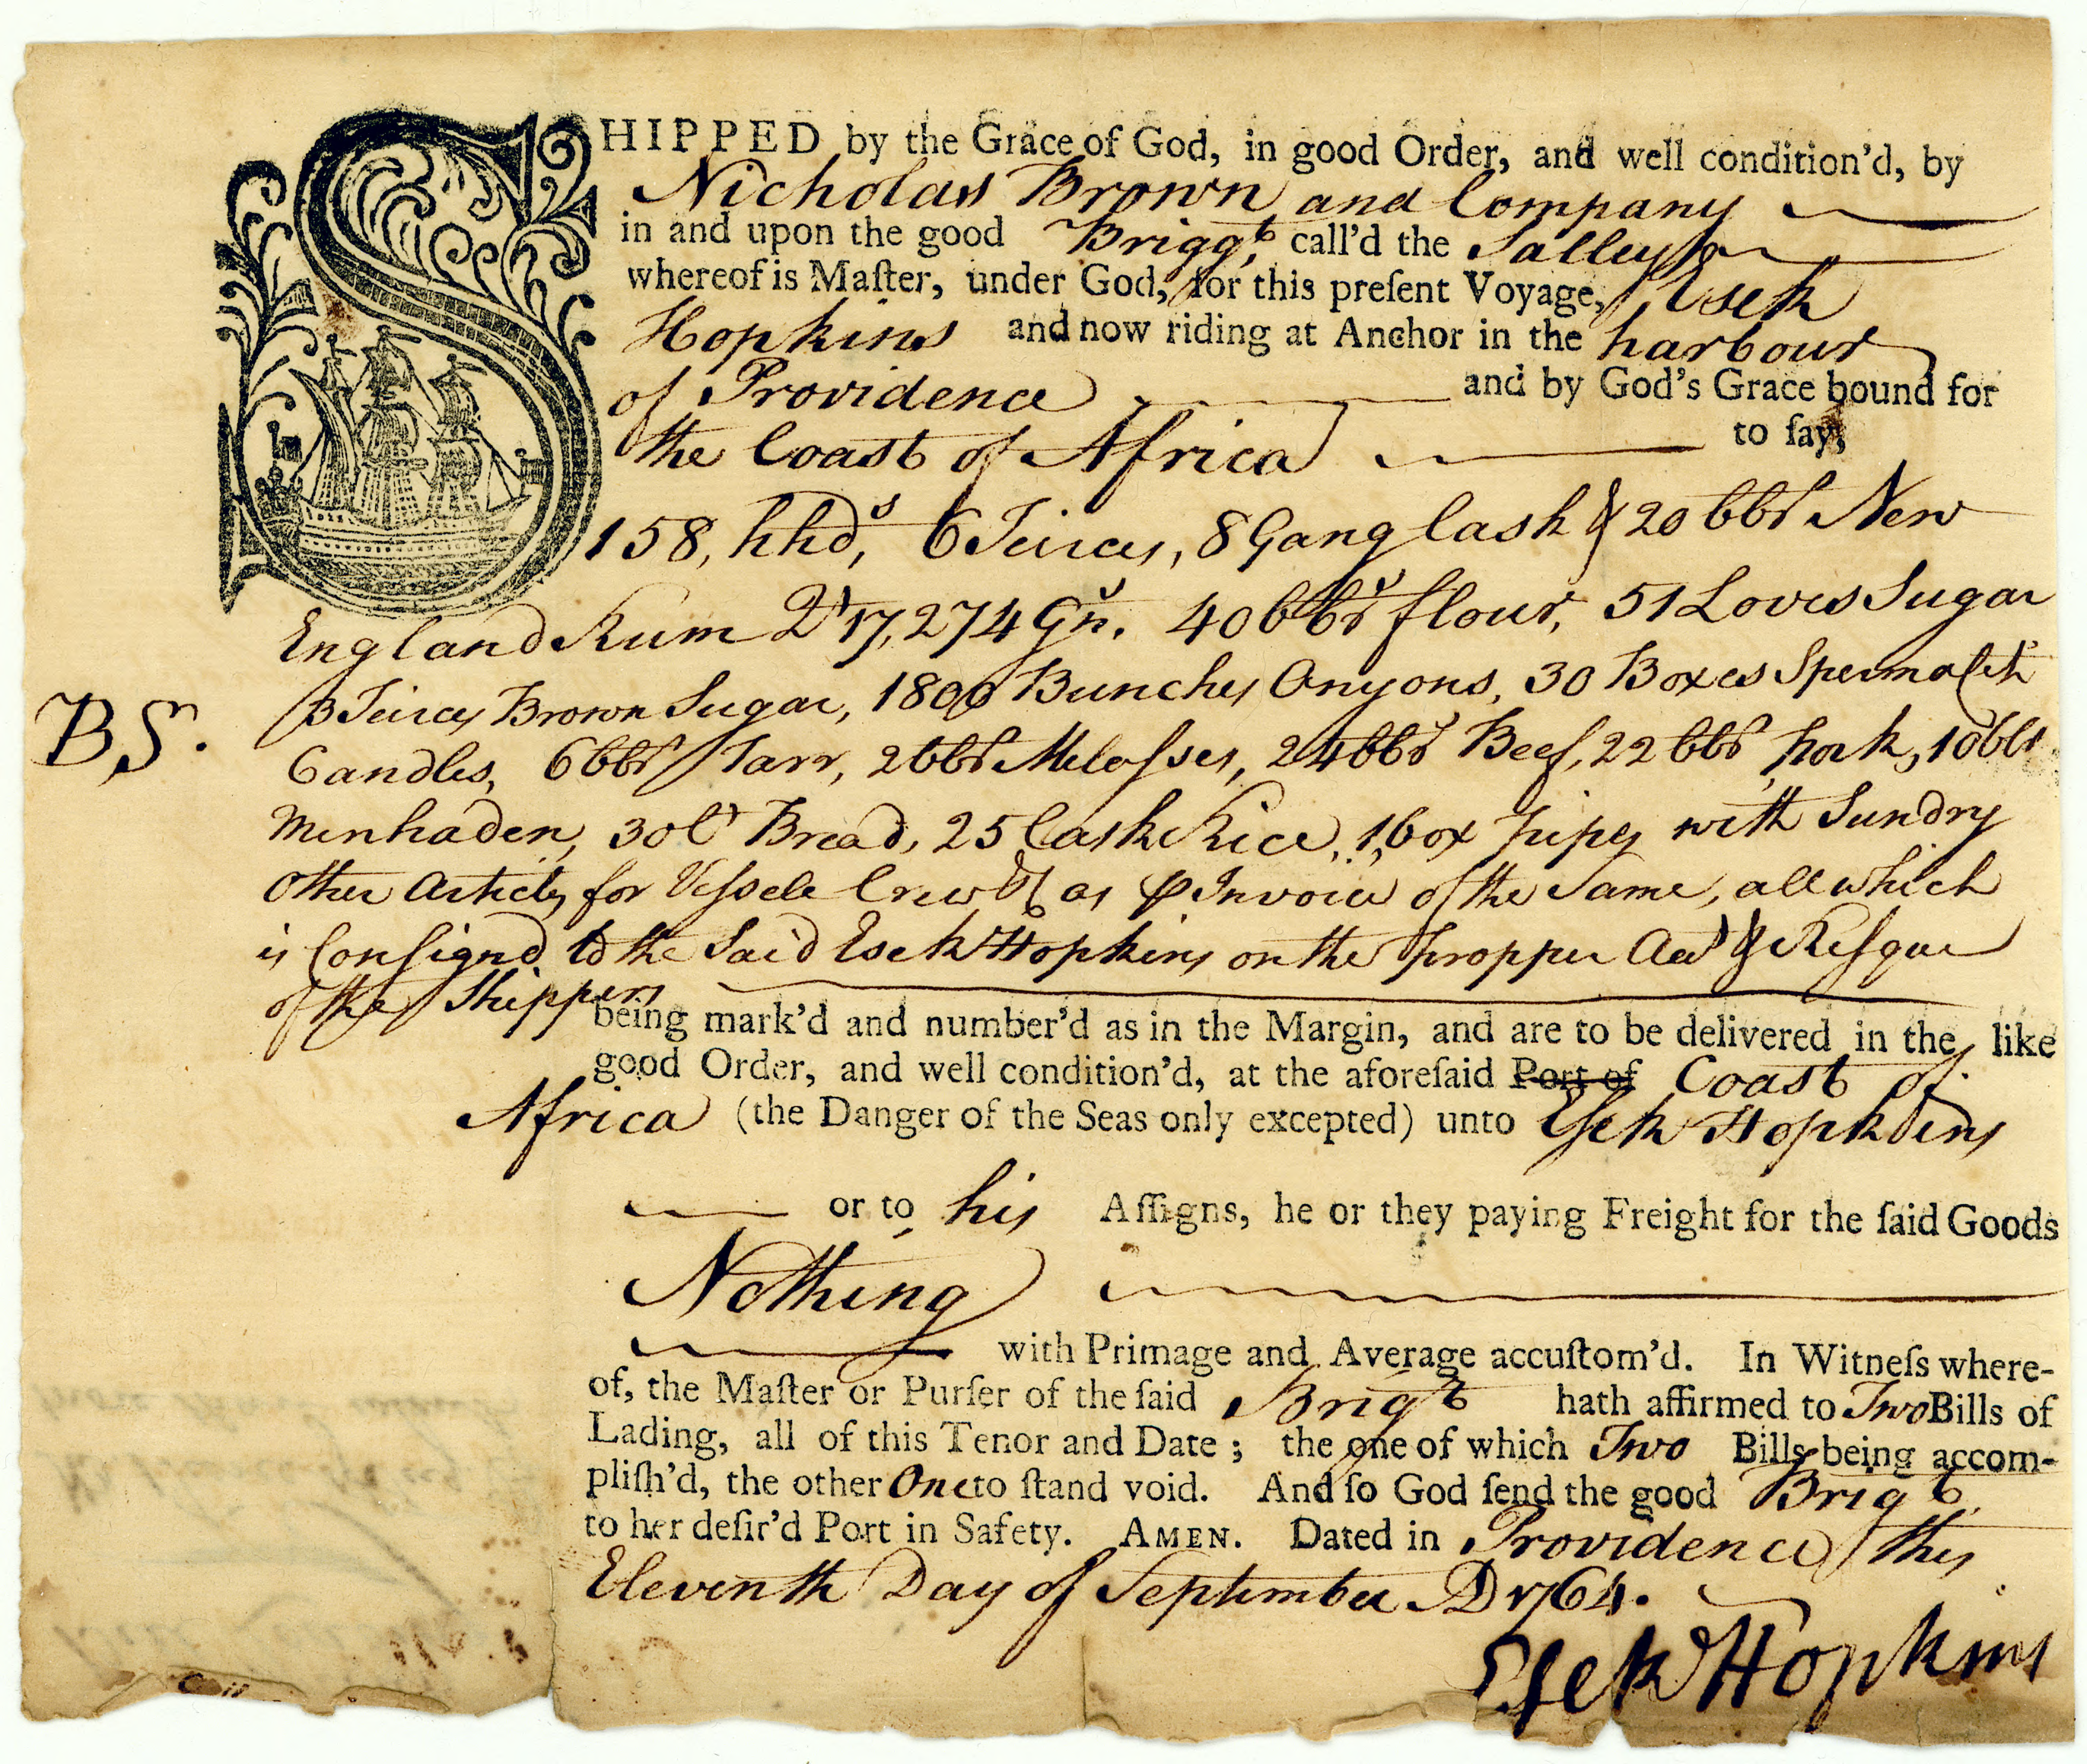 SHIPPED by the Grace of God, in good Order, and well condition'd, by
Nicholas Brown and Company
in and upon the good Briggt, call'd the Salley
whereof is Maſter, under God, for this preſent Voyage, Esek
Hopkins and now riding at Anchor in the harbour
of Providence and by God's Grace bound for
the Coast of Africa to ſay,
158, hhds, 6 Teirces, 8 Gang Cask & 20 bbls New
England Rum Qt 17,274 Gns. 40 bbls flour, 51 Loves Sugar
3 Teirces Brown Sugar, 1800 Bunches Onyons, 30 Boxes Spermaceti
BS.
Candles, 6 bbls Tarr, 2 bbls Melaſses, 24 bbls Beef, 22 bbls pork, 10 bbls
Menhaden, 30 Ct Bread, 25 Cask Rice, 1 box pipes with Sundry
Other Articles for Veſsele Crew & as ⅌ Invoice of the Same, all which
is Conſignd to the Said Esek Hopkins on the propper Acct & Reſque
of the Shippers
being mark'd and number'd as in the Margin, and are to be delivered in the like
good Order, and well condition'd, at the aforeſaid Port of Coast of
Africa (the Danger of the Seas only excepted) unto Eſek Hopkins
or to his Aſſigns, he or they paying Freight for the ſaid Goods
Nothing
with Primage and Average accuſtom'd. In Witneſs where-
of, the Maſter or Purſer of the ſaid Brigt hath affirmed to Two Bills of
Lading, all of this Tenor and Date; the one of which Two Bills being accom-
pliſh'd, the other One to ſtand void. And ſo God ſend the good Brigt
to her deſir'd Port in Safety. AMEN. Dated in Providence this
Eleventh Day of September AD 1764.
Eſek Hopkins